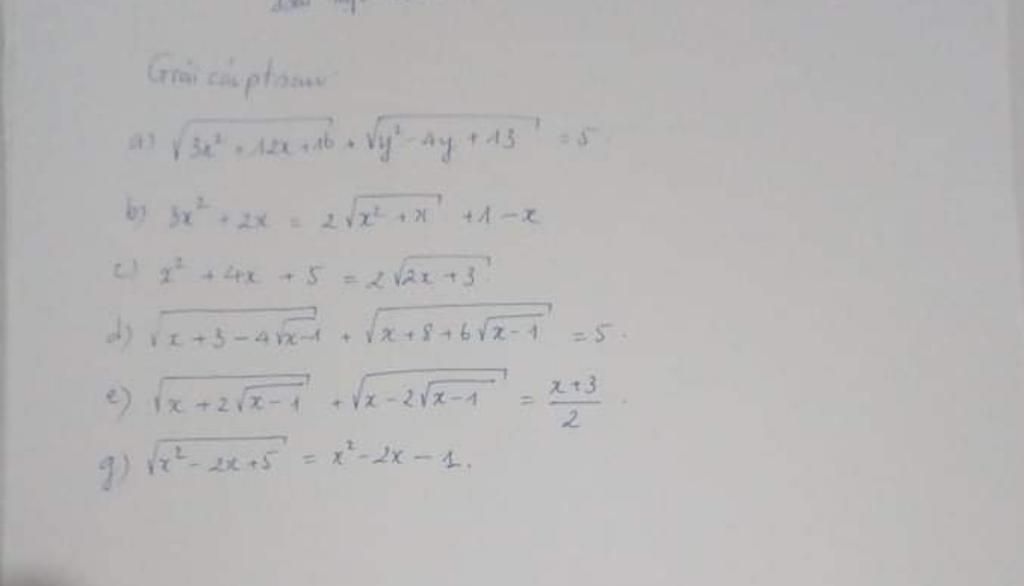 Giải các pt sau
a) √(3x² + 12x + 16) + √(y² - 4y + 13) = 5
b) 3x² + 2x = 2√(x² + x) + 1 - x
c) x² + 4x + 5 = 2√(2x + 3)
d) √(x + 3 - 4√(x - 1)) + √(x + 8 + 6√(x - 1)) = 5.
e) √(x + 2√(x - 1)) + √(x - 2√(x - 1)) = (x + 3)/2.
g) √(x² - 2x + 5) = x² - 2x - 1.